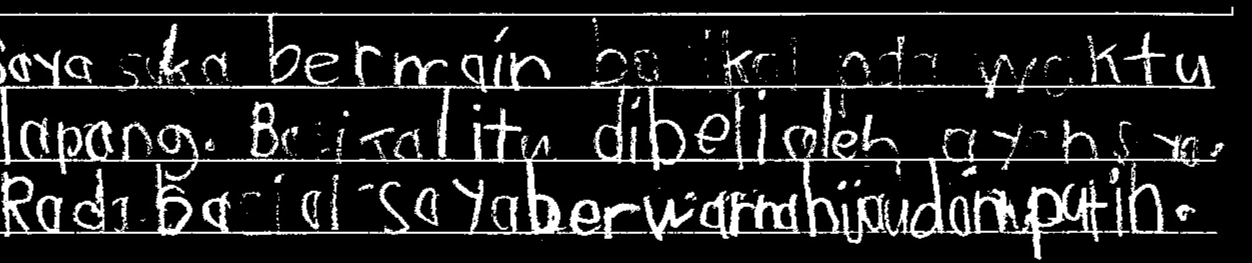 saya suka bermain basikal pada waktu
lapang. Basikal itu dibeli oleh ayah saya.
Pada basikal saya berwarna hijau dan putih.